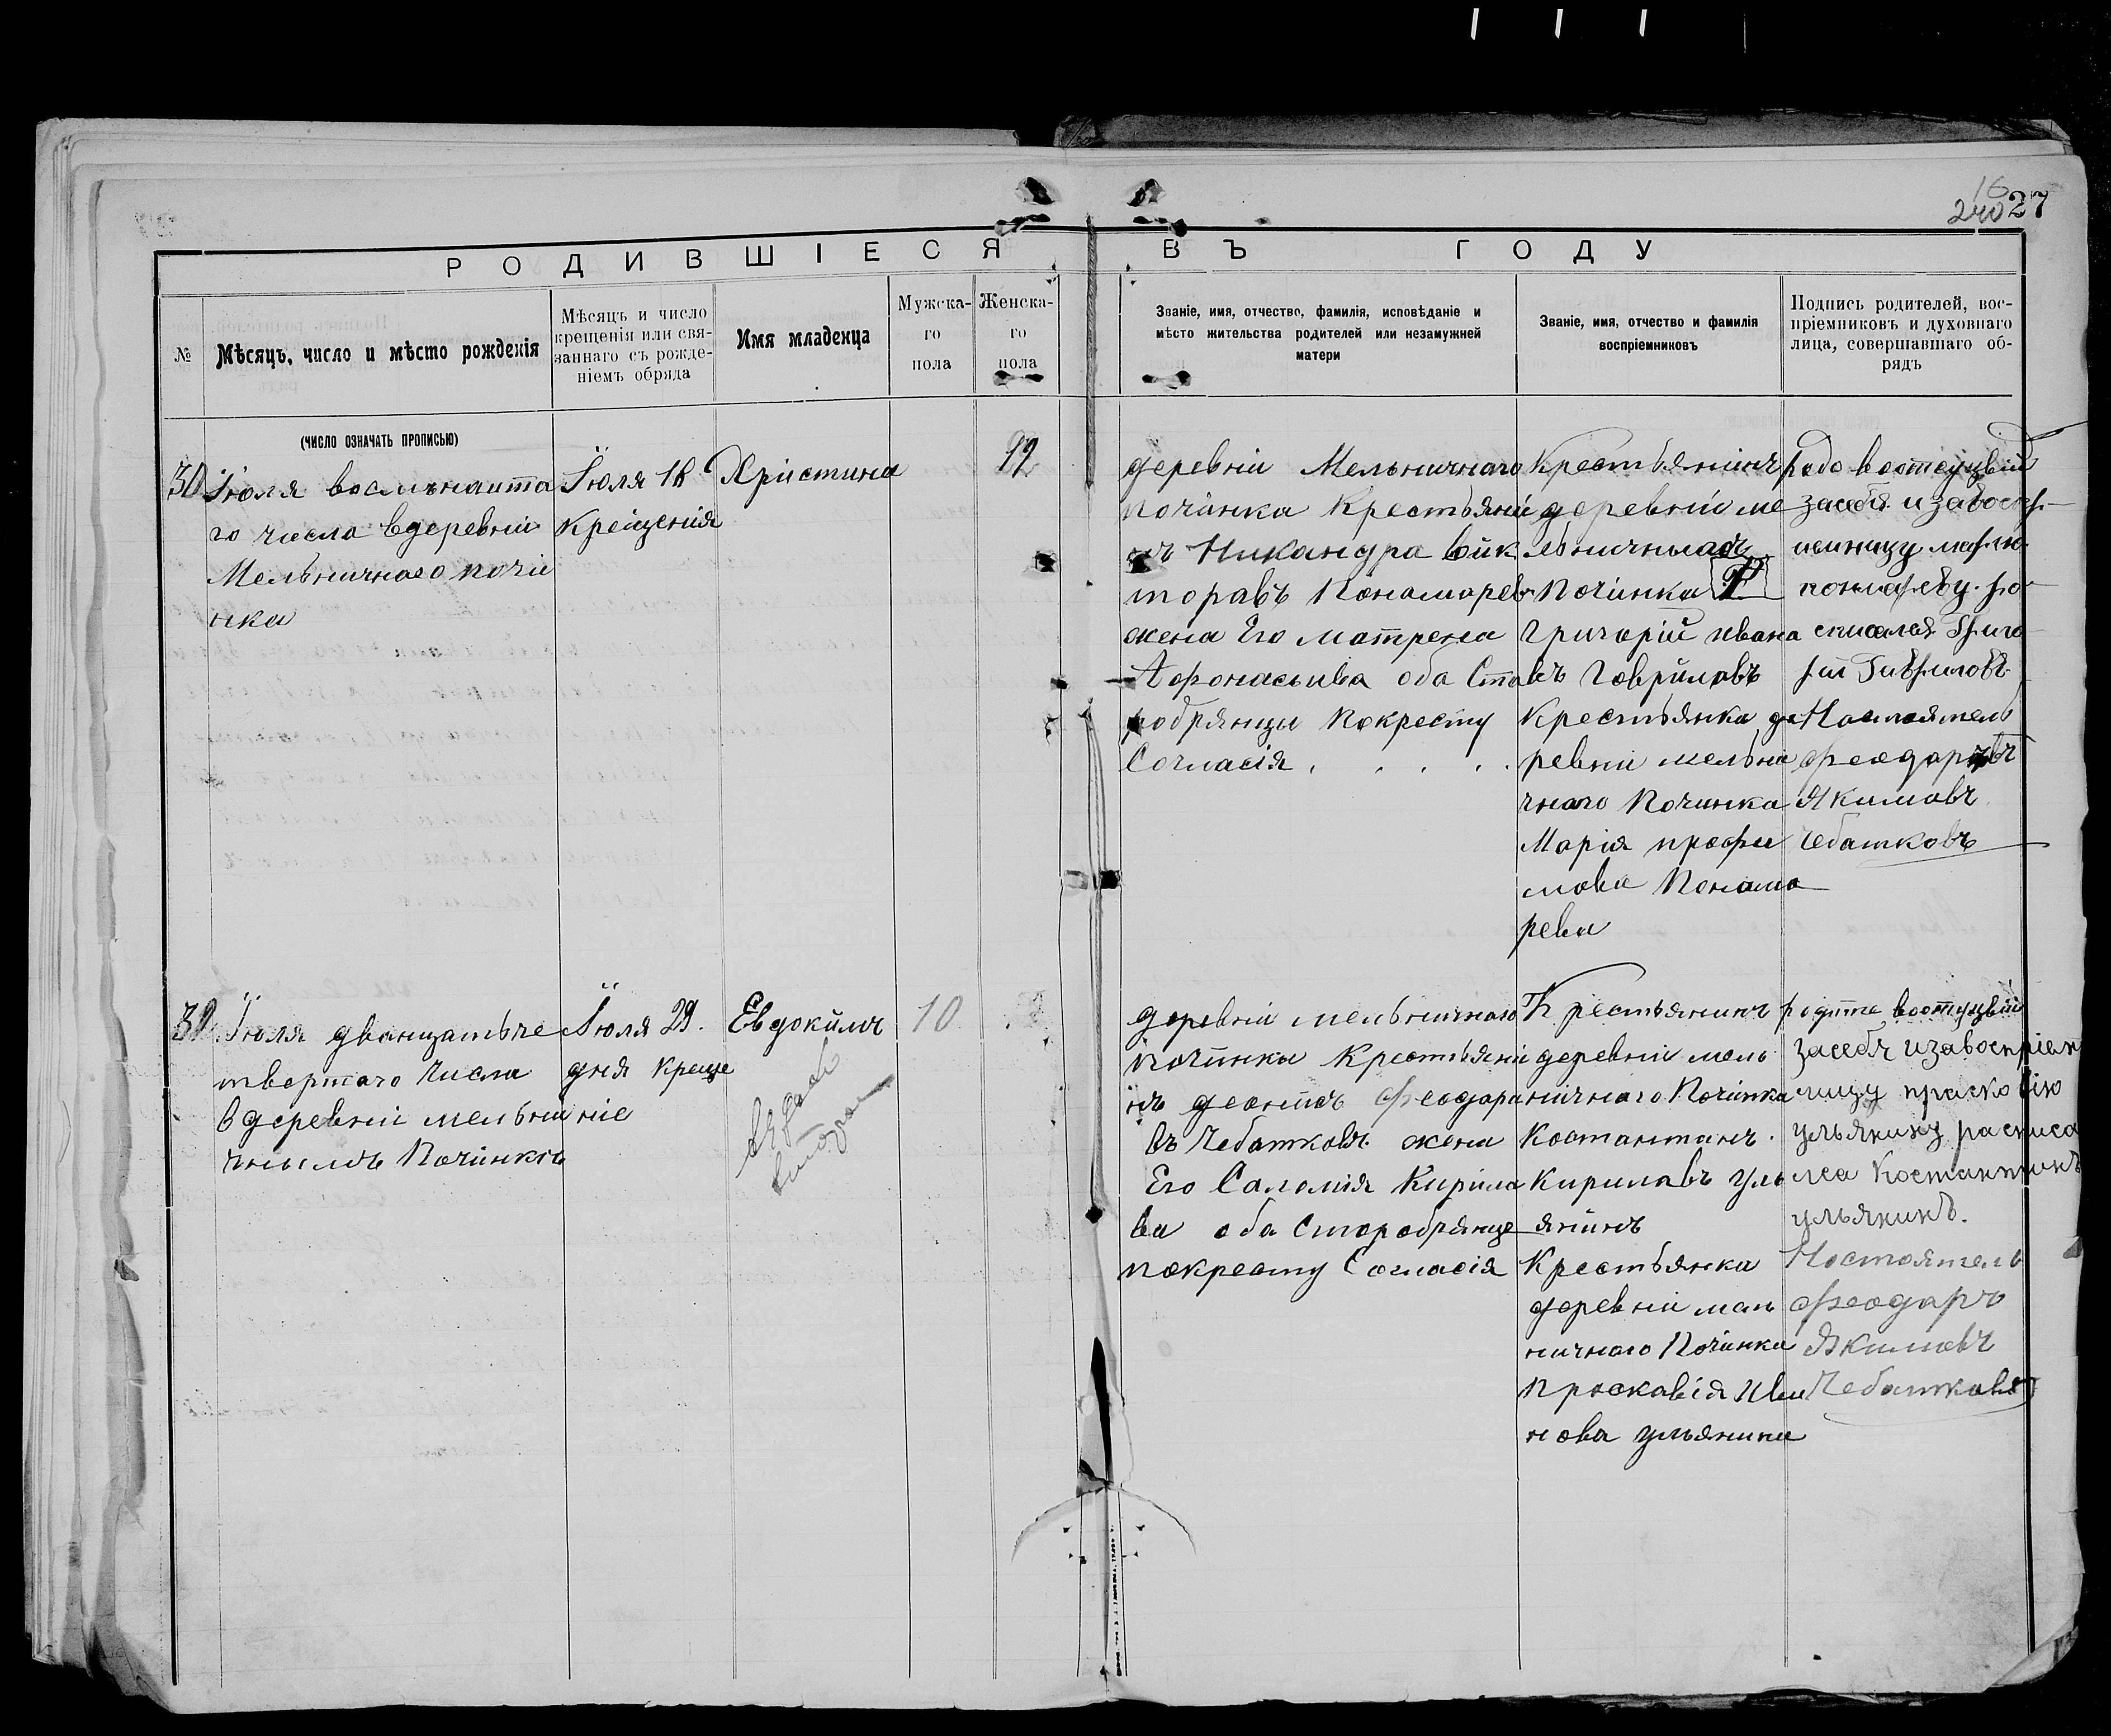 16
240 27
РОДИВШІЕСЯ ВЪ ГОДУ
№
Мѣсяцъ, число и мѣсто рожденія
Мѣсяцъ и число
крещенія или свя-
заннаго съ рожде-
ніемъ обряда
Имя младенца
Мужска-
го
пола
Женска-
го
пола
Званіе, имя, отчество, фамилія, исповѣданіе и
мѣсто жительства родителей или незамужней
матери
Званіе, имя, отчество и фамилія
воспріемниковъ
Подпись родителей, вос-
пріемниковъ и духовнаго
лица, совершавшаго об-
рядъ
(ЧИСЛО ОЗНАЧАТЬ ПРОПИСЬЮ)
30
Іюля восмьнатта
го числа вдеревніи
Мельничнаго почи
нка
Іюля 18
крещенія
Христина
деревніи Мельничнаго
починка Крестьяни
нъ Никандра Вик
торавъ Пономорев
жена Его матрена
Афонасьива оба Ста
робрянцы покресту
Согласія
Крестьянинъ
деревніи ме
льничнаго
Починка
Григорій ивана
въ Гаврилавъ
Крестьянка де
ревніи мельни
чнаго Починка
Марія профи
мова Понамо
рева
засебя и завоспр
Настоятель
Феодаръ
Якимовъ
Чебатковъ
Іюля дванцатьче
твертаго Числа
вдеревніи мельни
чнымъ Починкъ
Іюля 29.
дня Креще
ніе
Евдокимъ
10
деревніи мельничнаго
починка Крестьяни
нъ Феодара
въ Чебатковъ жена
Его Саломія Кирила
ва оба Старобрянце
покресту Согласія
Крестьянинъ
деревніи мель
ничнаго Починка
Костантинъ
Кирилавъ Уль
янинъ
Крестьянка
деревніи мель
ничнаго Починка
Прасковія Ива
нова ульянина
засебя изавоспріем
ницу прасковію
ульянину расписа
лса Костантинъ
ульянинъ.
Ностоятель
Феодаръ
Якимовъ
Чебатковъ